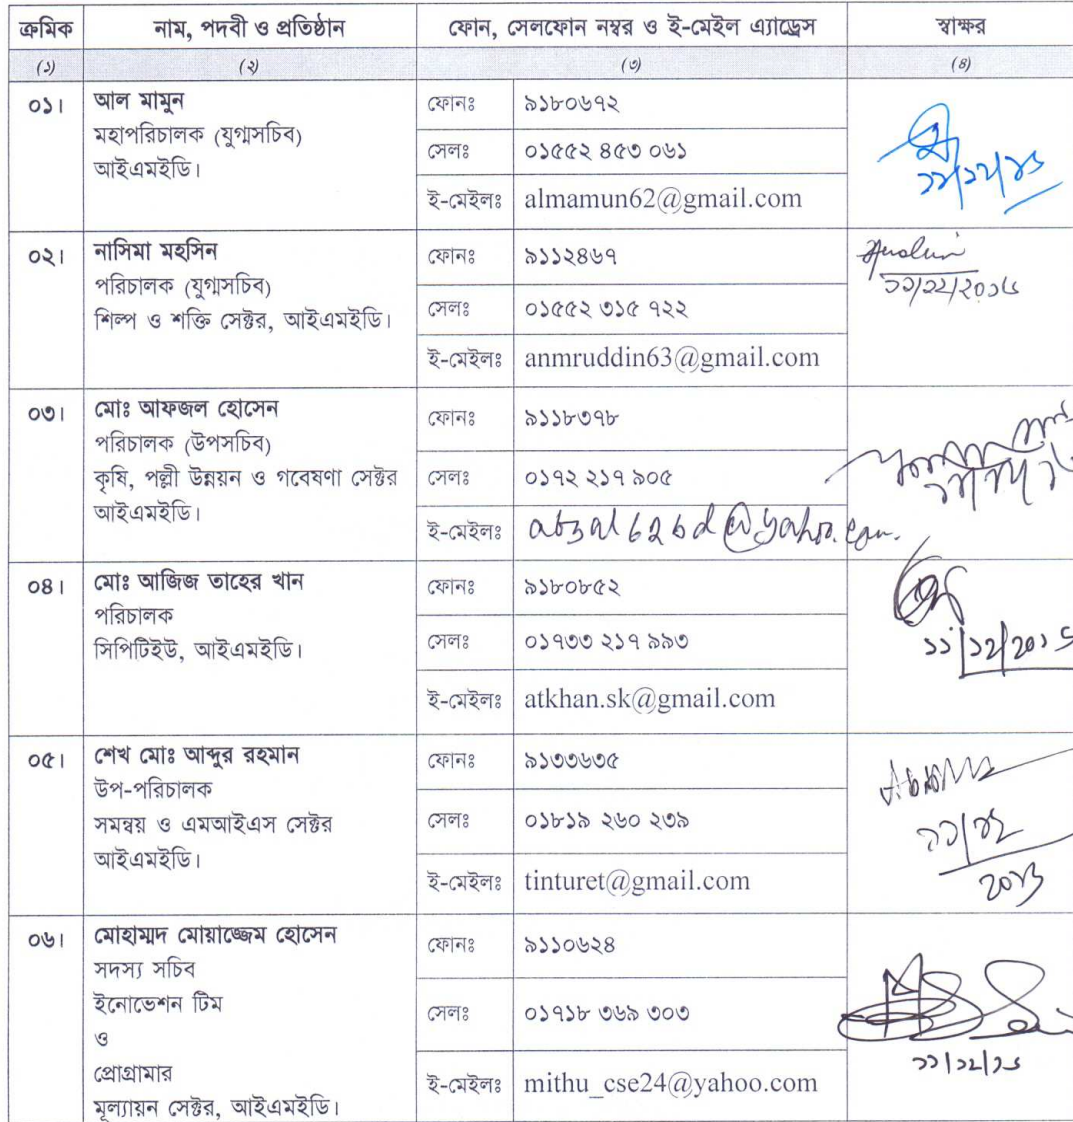 ক্রমিক নাম, পদবী ও প্রতিষ্ঠান ফোন, সেলফোন নম্বর ও ই-মেইল এ্যাড্রেস স্বাক্ষর
(১) (২) (৩) (৪)
০১। আল মামুন
মহাপরিচালক (যুগ্মসচিব)
আইএমইডি।
ফোনঃ ৯১৮০৬৭২
সেলঃ ০১৫৫২ ৪৫৩ ০৬১
ই-মেইলঃ almamun62@gmail.com
০২। নাসিমা মহসিন
পরিচালক (যুগ্মসচিব)
শিল্প ও শক্তি সেক্টর, আইএমইডি।
ফোনঃ ৯১১২৪৬৭
সেলঃ ০১৫৫২ ৩১৫ ৭২২
ই-মেইলঃ anmruddin63@gmail.com
০৩। মোঃ আফজল হোসেন
পরিচালক (উপসচিব)
কৃষি, পল্লী উন্নয়ন ও গবেষণা সেক্টর
আইএমইডি।
ফোনঃ ৯১১৮৩৭৮
সেলঃ ০১৭২ ২১৭ ৯০৫
ই-মেইলঃ
০৪। মোঃ আজিজ তাহের খান
পরিচালক
সিপিটিইউ, আইএমইডি।
ফোনঃ ৯১৮০৮৫২
সেলঃ ০১৭৩৩ ২১৭ ৯৯৩
ই-মেইলঃ atkhan.sk@gmail.com
০৫। শেখ মোঃ আব্দুর রহমান
উপ-পরিচালক
সমন্বয় ও এমআইএস সেক্টর
আইএমইডি।
ফোনঃ ৯১৩৩৬৩৫
সেলঃ ০১৮১৯ ২৬০ ২৩৯
ই-মেইলঃ tinturet@gmail.com
০৬। মোহাম্মদ মোয়াজ্জেম হোসেন
সদস্য সচিব
ইনোভেশন টিম
ও
প্রোগ্রামার
মূল্যায়ন সেক্টর, আইএমইডি।
ফোনঃ ৯১১০৬২৪
সেলঃ ০১৭১৮ ৩৬৯ ৩০৩
ই-মেইলঃ mithu_cse24@yahoo.com